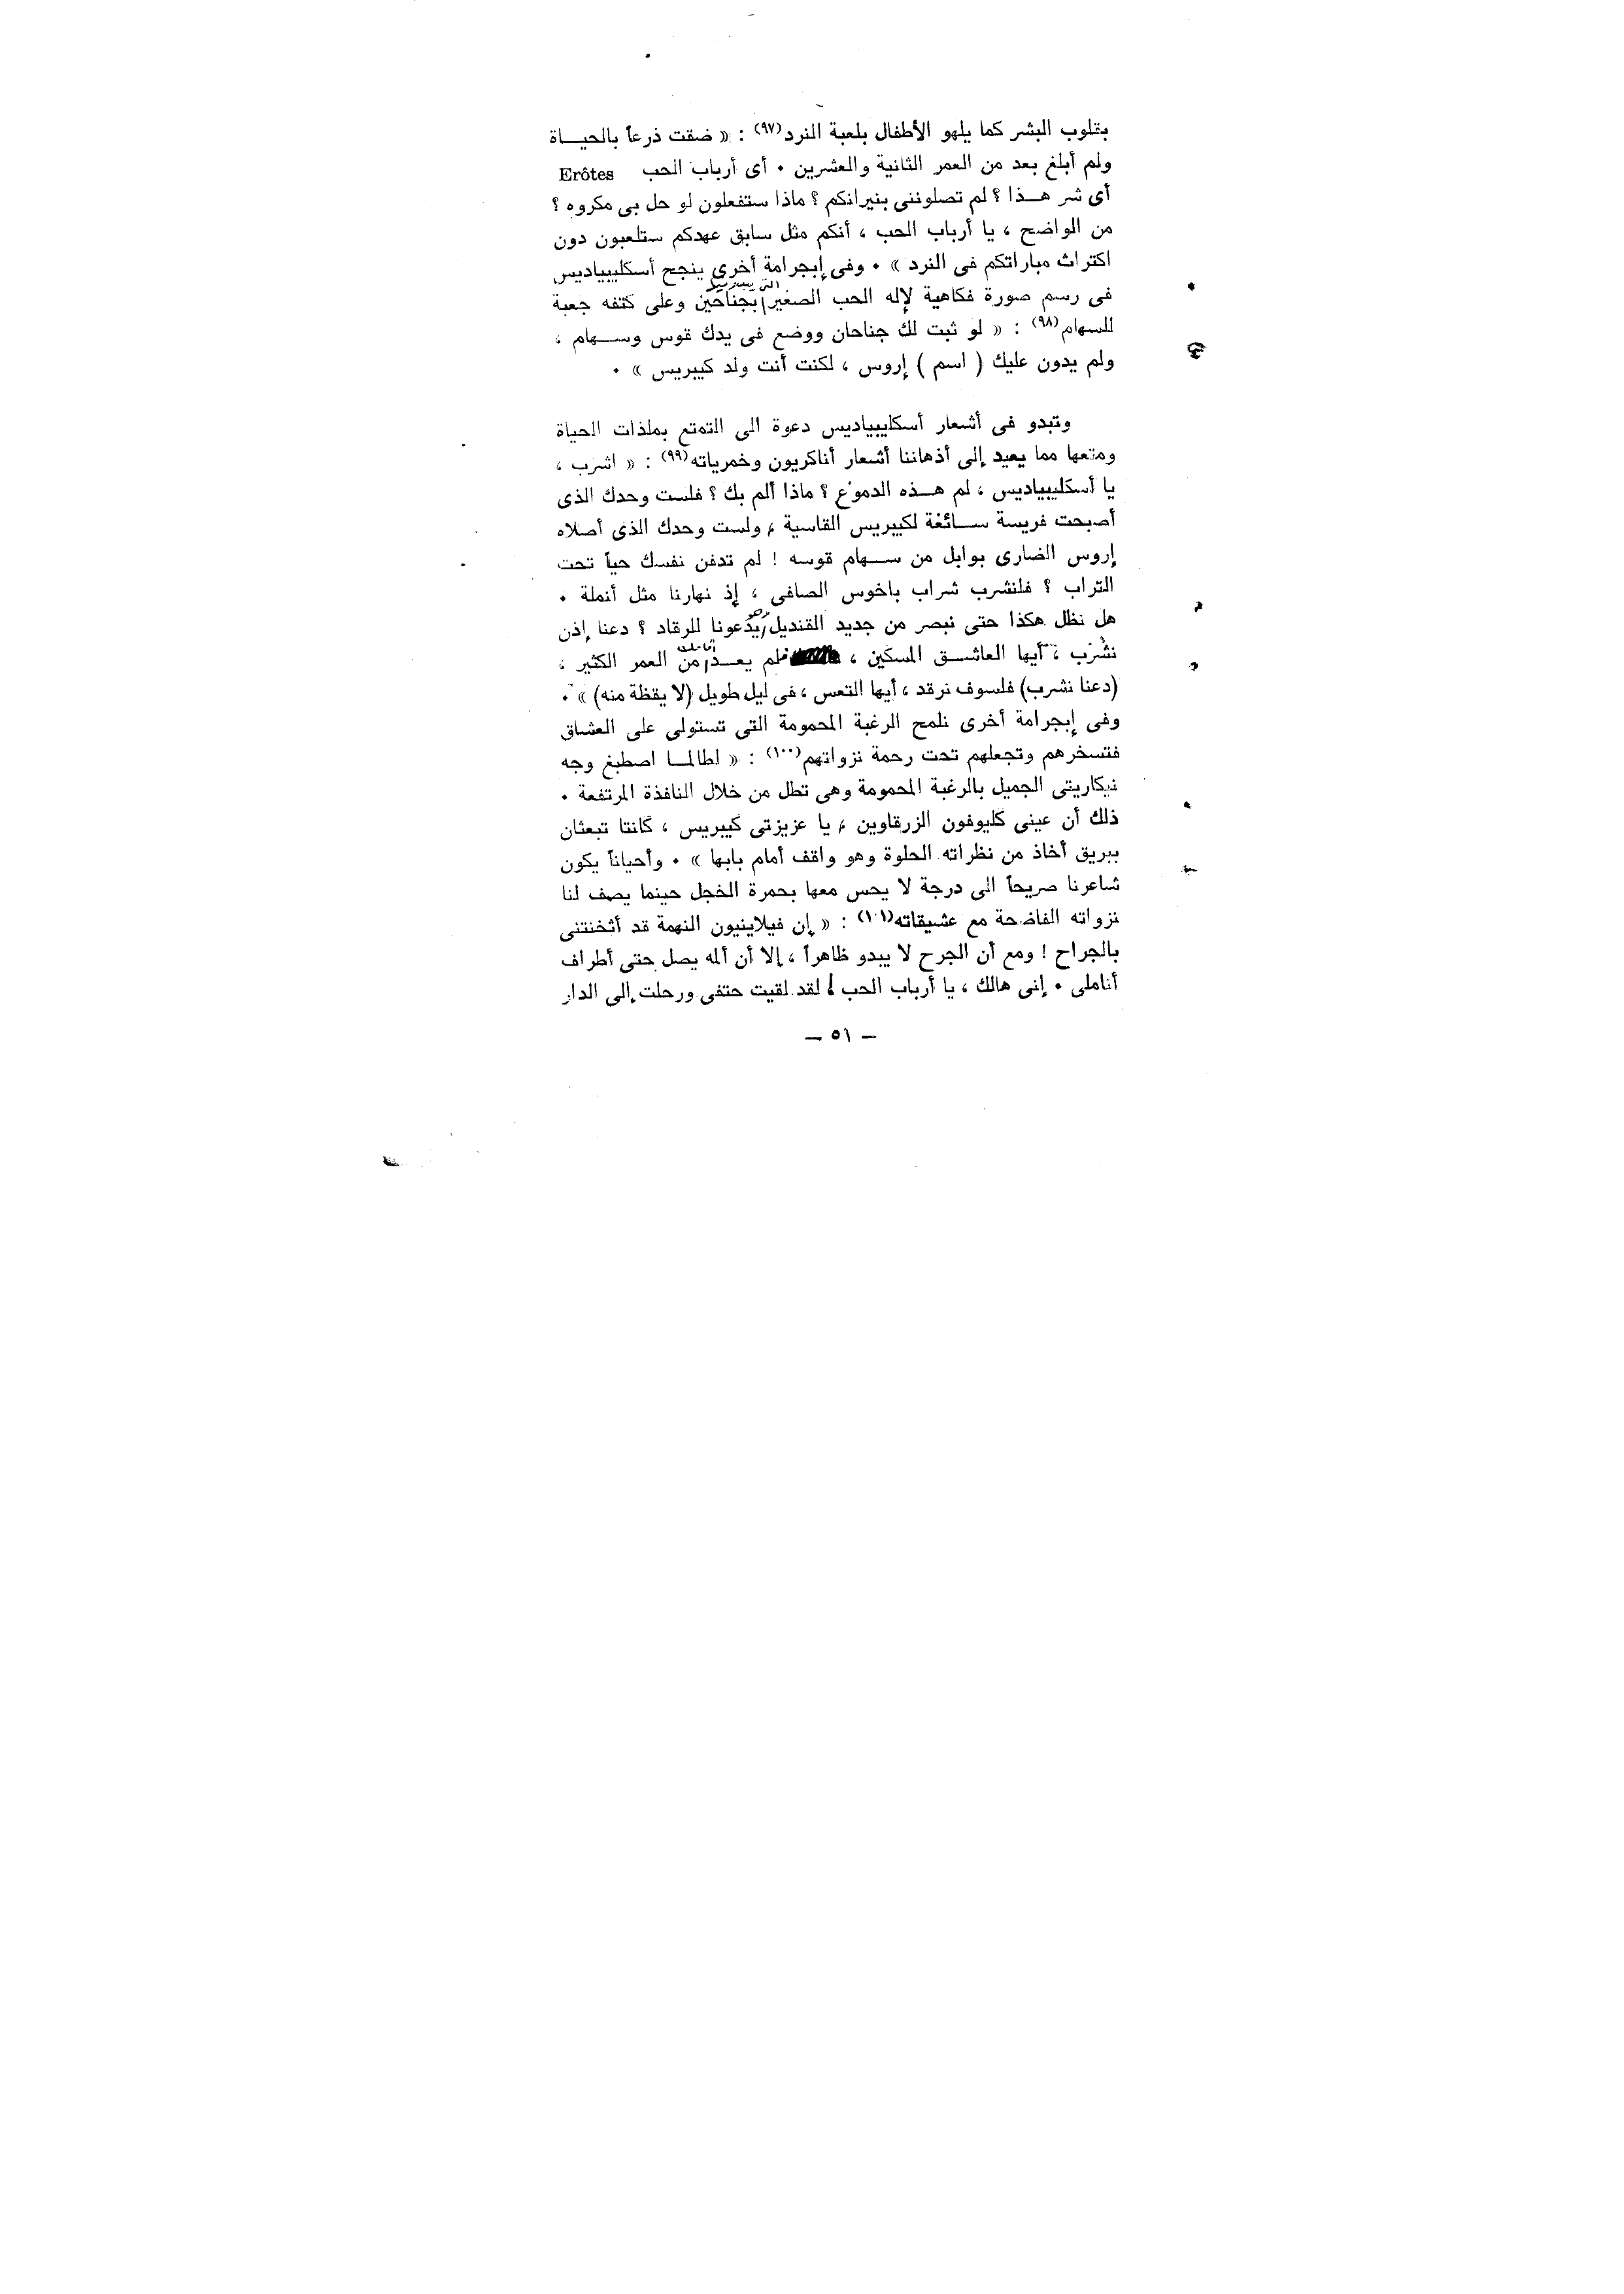 بقلوب البشر كما يلهو الأطفال بلعبة النرد(٩٧) : « ضقت ذرعاً بالحيـــاة
ولم أبلغ بعد من العمر الثانية والعشرين ٠ أى أرباب الحب Erôtes
أى شر هـــذا ؟ لم تصلوننى بنيرانكم ؟ ماذا ستفعلون لو حل بى مكروه ؟
من الواضح ، يا أرباب الحب ، أنكم مثل سابق عهدكم ستلعبون دون
اكتراث مباراتكم فى النرد » ٠ وفى إبجرامة أخرى ينجح أسكليبياديس
فى رسم صورة فكاهية لإله الحب الصغير بجناحين وعلى كتفه جعبة
للسهام(٩٨) : « لو ثبت لك جناحان ووضع فى يدك قوس وســـهام ،
ولم يدون عليك ( اسم ) إروس ، لكنت أنت ولد كيبريس » ٠
وتبدو فى أشعار أسكليبياديس دعوة الى التمتع بملذات الحياة
ومتعها مما يعيد إلى أذهاننا أشعار أناكريون وخمرياته(٩٩) : « اشرب ،
يا أسكليبياديس ، لم هـــذه الدموع ؟ ماذا ألم بك ؟ فلست وحدك الذى
أصبحت فريسة ســـائغة لكيبريس القاسية ، ولست وحدك الذى أصلاه
إروس الضارى بوابل من ســـهام قوسه ! لم تدفن نفسك حياً تحت
التراب ؟ فلنشرب شراب باخوس الصافى ، إذ نهارنا مثل أنملة ٠
هل نظل هكذا حتى نبصر من جديد القنديل يدعونا للرقاد ؟ دعنا إذن
نشرب ، أيها العاشـــق المسكين ، فلم يعـــد أمامك من العمر الكثير ،
(دعنا نشرب) فلسوف نرقد ، أيها التعس ، فى ليل طويل (لا يقظة منه) » ٠
وفى إبجرامة أخرى نلمح الرغبة المحمومة التى تستولى على العشاق
فتسخرهم وتجعلهم تحت رحمة نزواتهم(١٠٠) : « لطالمـــا اصطبغ وجه
نيكاريتى الجميل بالرغبة المحمومة وهى تطل من خلال النافذة المرتفعة ٠
ذلك أن عينى كليوفون الزرقاوين ، يا عزيزتى كيبريس ، كانتا تبعثان
ببريق أخاذ من نظراته الحلوة وهو واقف أمام بابها » ٠ وأحياناً يكون
شاعرنا صريحاً الى درجة لا يحس معها بحمرة الخجل حينما يصف لنا
نزواته الفاضحة مع عشيقاته(١٠١) : « إن فيلاينيون النهمة قد أثخنتنى
بالجراح ! ومع أن الجرح لا يبدو ظاهراً ، إلا أن ألمه يصل حتى أطراف
أناملى ٠ إنى هالك ، يا أرباب الحب ! لقد لقيت حتفى ورحلت إلى الدار
— ٥١ —